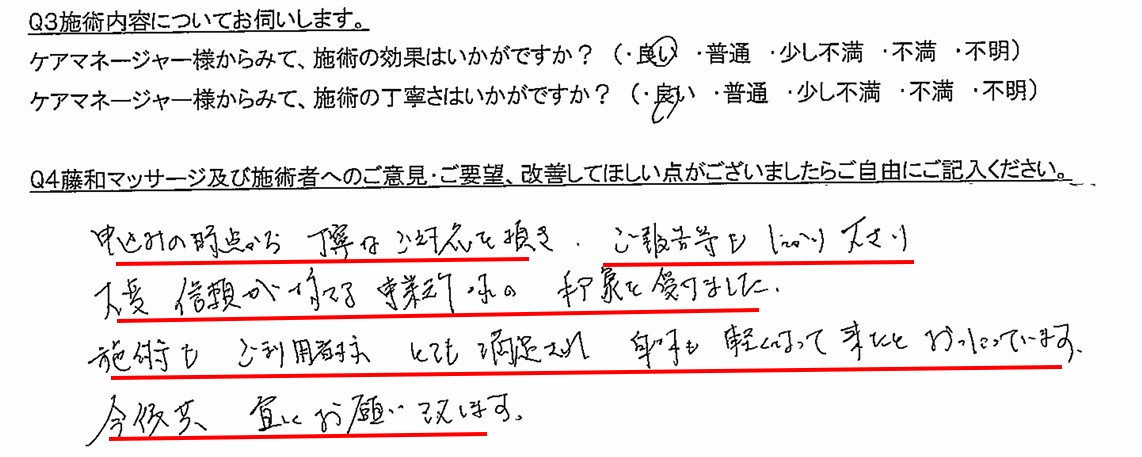 Q3施術内容についてお伺いします。
ケアマネージャー様からみて、施術の効果はいかがですか？（・良い ・普通 ・少し不満 ・不満 ・不明）
ケアマネージャー様からみて、施術の丁寧さはいかがですか？（・良い ・普通 ・少し不満 ・不満 ・不明）
Q4藤和マッサージ及び施術者へのご意見・ご要望、改善してほしい点がございましたらご自由にご記入ください。
申込みの時点から 丁寧なご対応を頂き、ご報告等も しっかり 下さり
大変 信頼が 持てる 事業所様の 印象を 受けました。
施術も ご利用者様 とても 満足され 身体も 軽くなって 来たと おっしゃっています。
今後共、宜しくお願い致します。